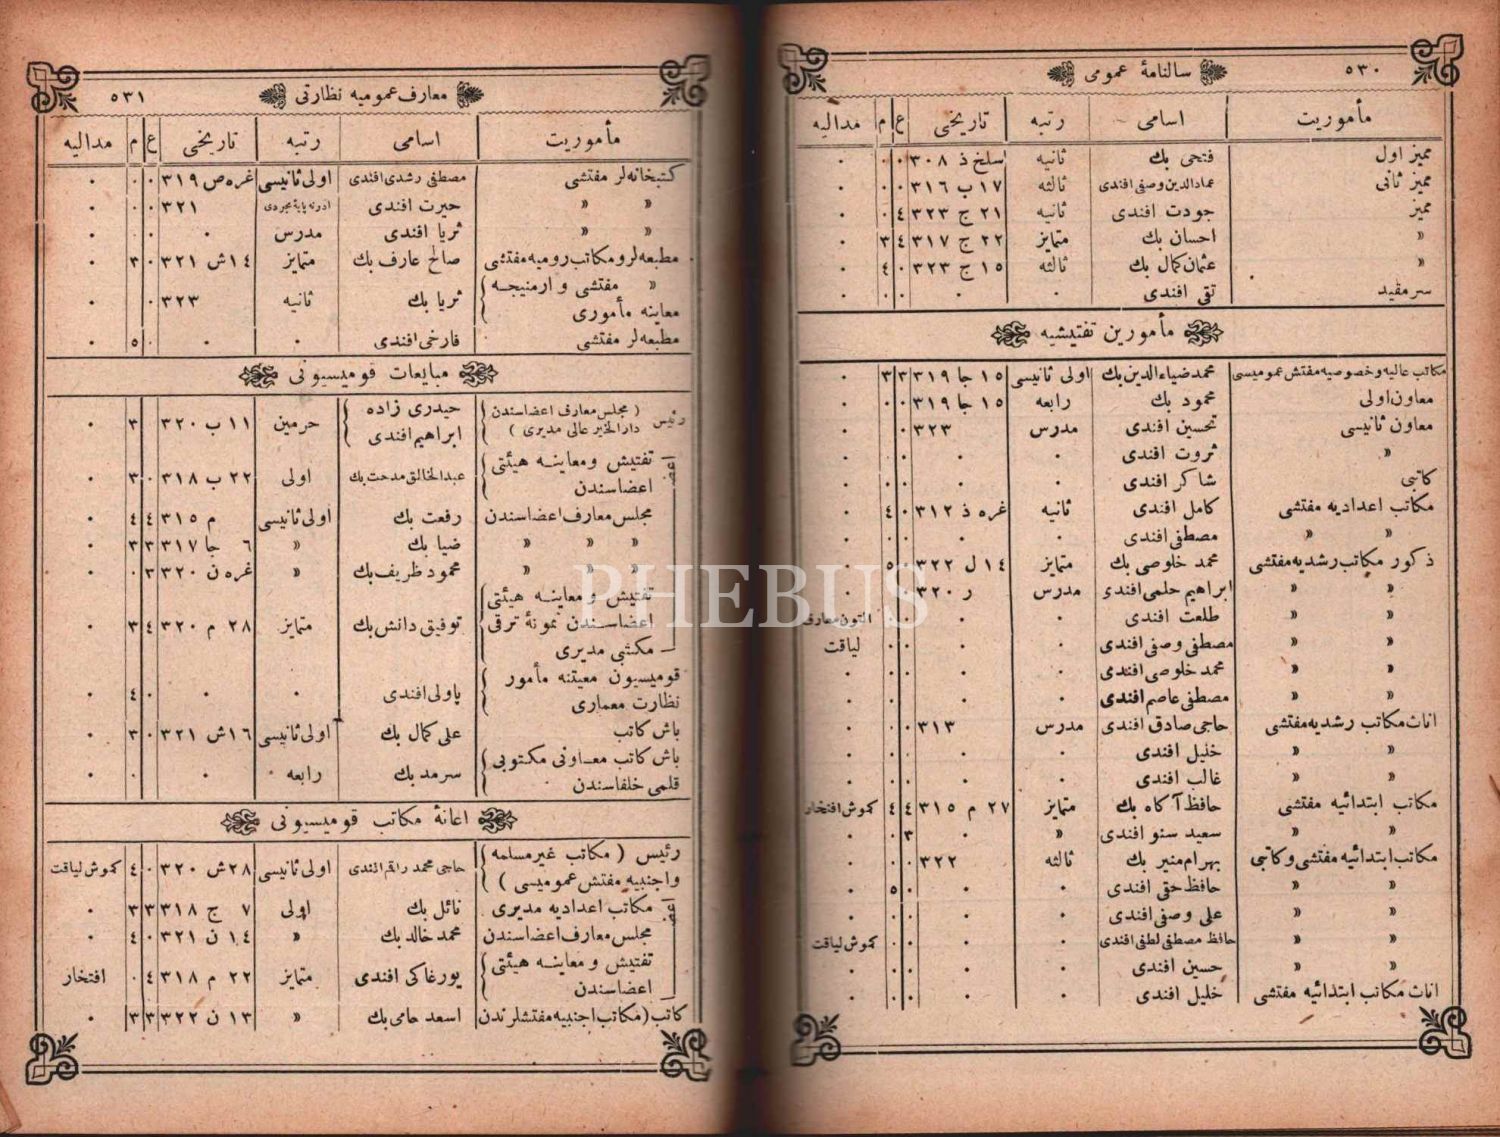 ٥٣٠ سالنامهٔ عمومی
مأموریت اسامی رتبه تاریخی ع م مدالیه
ممیز اول فتحی بك ثانیه سلخ ذ ٣٠٨ ٠ ٠ ٠
ممیز ثانی عمادالدین وصفی افندی ثالثه ١٧ ب ٣١٦ ٠ ٠ ٠
ممیز جودت افندی ثانیه ٢١ ج ٣٢٣ ٤ ٠ ٠
» احسان بك متمایز ٢٢ ج ٣١٧ ٤ ٣ ٠
» عثمان كمال بك ثالثه ١٥ ج ٣٢٣ ٠ ٤ ٠
سرمقید تقی افندی ٠ ٠ ٠ ٠ ٠
مأمورین تفتیشیه
مكاتب عالیه و خصوصیه مفتش عمومیسی محمد ضیاءالدین بك اولی ثانیسی ١٥ جا ٣١٩ ٣ ٣ ٠
معاون اولی محمود بك رابعه ١٥ جا ٣١٩ ٠ ٠ ٠
معاون ثانیسی تحسین افندی مدرس ٣٢٣ ٠ ٠
» ثروت افندی ٠ ٠ ٠ ٠ ٠
كاتبی شاكر افندی ٠ ٠ ٠ ٠ ٠
مكاتب اعدادیه مفتشی كامل افندی ثانیه غره ذ ٣١٢ ٠ ٤ ٠
» » مصطفی افندی ٠ ٠ ٠ ٠ ٠
ذكور مكاتب رشدیه مفتشی محمد خلوصی بك متمایز ١٤ ل ٣٢٢ ٠ ٥ ٠
» » ابراهیم حلمی افندی مدرس ر ٣٢٠ ٠ ٠
» » طلعت افندی ٠ ٠ ٠ ٠ التون معارف
» » مصطفی وصفی افندی ٠ ٠ ٠ ٠ لیاقت
» » محمد خلوصی افندی ٠ ٠ ٠ ٠ ٠
» » مصطفی عاصم افندی ٠ ٠ ٠ ٠ ٠
اناث مكاتب رشدیه مفتشی حاجی صادق افندی مدرس ٣١٣ ٠ ٠ ٠
» » خلیل افندی ٠ ٠ ٠ ٠ ٠
» » غالب افندی ٠ ٠ ٠ ٠ ٠
مكاتب ابتدائیه مفتشی حافظ آكاه بك متمایز ٢٧ م ٣١٥ ٤ ٤ كموش افتخار
» » سعید سنو افندی » ٠ ٣ ٠ ٠
مكاتب ابتدائیه مفتشی و كاتبی بهرام منیر بك ثالثه ٣٢٢ ٠ ٠ ٠
» » حافظ حقی افندی ٠ ٠ ٠ ٥ ٠
» » علی وصفی افندی ٠ ٠ ٠ ٠ ٠
» » حافظ مصطفی لطفی افندی ٠ ٠ ٠ ٠ كموش لیاقت
» » حسین افندی ٠ ٠ ٠ ٠ ٠
اناث مكاتب ابتدائیه مفتشی خلیل افندی ٠ ٠ ٠ ٠ ٠
معارف عمومیه نظارتی ٥٣١
مأموریت اسامی رتبه تاریخی ع م مدالیه
كتبخانه لر مفتشی مصطفی رشدی افندی اولی ثانیسی غره ص ٣١٩ ٠ ٠ ٠
» » حیرت افندی ادرنه پایهٔ مجردی ٣٢١ ٠ ٠ ٠
» » ثریا افندی مدرس ٠ ٠ ٠ ٠
مطبعه لر و مكاتب رومیه مفتشی صالح عارف بك متمایز ١٤ ش ٣٢١ ٠ ٣ ٠
» مفتشی و ارمنیجه
معاینه مأموری ثریا بك ثانیه ٣٢٣ ٠ ٠
مطبعه لر مفتشی فارخی افندی ٠ ٠ ٠ ٥ ٠
مبایعات قومیسیونی
رئیس ( مجلس معارف اعضاسندن
دار الخیر عالی مدیری ) حیدری زاده ابراهیم افندی حرمین ١١ ب ٣٢٠ ٣ ٠
اعضا تفتیش و معاینه هیئتی
اعضاسندن عبدالخالق مدحت بك اولی ٢٢ ب ٣١٨ ٠ ٣ ٠
مجلس معارف اعضاسندن رفعت بك اولی ثانیسی م ٣١٥ ٤ ٤ ٠
» » » ضیا بك » ٦ جا ٣١٧ ٣ ٣ ٠
» » » محمود ظریف بك » غره ن ٣٢٠ ٣ ٠ ٠
تفتیش و معاینه هیئتی
اعضاسندن نمونهٔ ترقی
مكتبی مدیری توفیق دانش بك متمایز ٢٨ م ٣٢٠ ٤ ٣ ٠
قومیسیون معیتنه مأمور
نظارت معماری پاولی افندی ٠ ٠ ٠ ٤ ٠
باش كاتب علی كمال بك اولی ثانیسی ١٦ ش ٣٢١ ٠ ٣ ٠
باش كاتب معاونی مكتوبی
قلمی خلفاسندن سرمد بك رابعه ٠ ٠ ٠ ٠
اعانهٔ مكاتب قومیسیونی
رئیس ( مكاتب غیر مسلمه
و اجنبیه مفتش عمومیسی ) حاجی محمد راقم افندی اولی ثانیسی ٢٨ ش ٣٢٠ ٠ ٤ كموش لیاقت
اعضا مكاتب اعدادیه مدیری نائل بك اولی ٧ ج ٣١٨ ٣ ٣ ٠
مجلس معارف اعضاسندن محمد خالد بك » ١٤ ن ٣٢١ ٠ ٤ ٠
تفتیش و معاینه هیئتی
اعضاسندن یورغاكی افندی متمایز ٢٢ م ٣١٨ ٤ ٠ افتخار
كاتب (مكاتب اجنبیه مفتشلرندن اسعد حامی بك » ١٣ ن ٣٢٢ ٣ ٣ ٠
PHEBUS